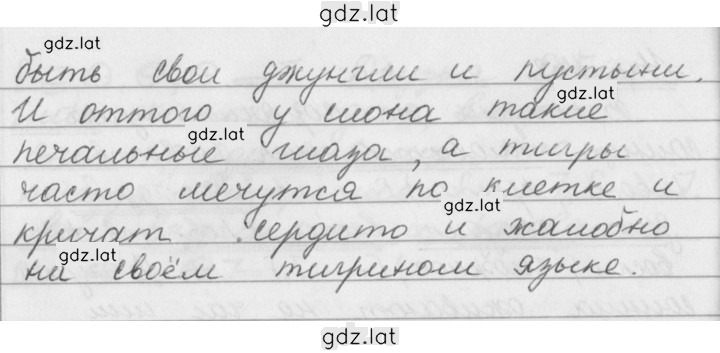 gdz.lat
gdz.lat
быть свои джунгли и пустыни.
gdz.lat
И оттого у слона такие
gdz.lat
печальные глаза, а тигры
часто мечутся по клетке и
gdz.lat
кричат сердито и жалобно
gdz.lat
на своём тигрином языке.
gdz.lat